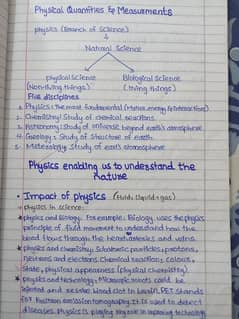 Physical Quantities & Measurments
physics (Branch of Science)
Natural Science
physical science Biological Science
(Non-living things) (Living things)
Five disciplines
1. Physics: The most fundamental (Matter, energy & interaction)
2. Chemistry: Study of chemical reactions.
3. Astronomy: Study of universe beyond earth's atmosphere
4. Geology: Study of Structure of earth.
5. Meteorology: Study of earth's atmosphere
Physics enabling us to understand the
Nature
• Impact of physics (fluid: liquid + gas)
physics in science:
physics and Biology: For example: Biology, uses the physics
principle of fluid movement to understand how the
blood flows through the heart, arteries and veins.
physics and chemistry: Subatomic particles, protons,
neutrons and electrons. Chemical reaction; colours,
state, physical appearness (physical chemistry)
physics and technology: Microscopic robots could be
injected and resolve blood clot in brain. PET stands
for Positron emission tomography. It is used to detect
diseases. Physics is playing key role in improving technology